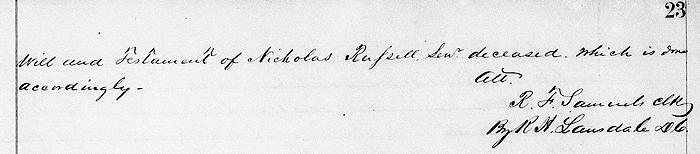 23
Will and Testament of Nicholas Russell, Senr. deceased. Which is done
accordingly -
Att.
R. F. Samuels Clk
By R H. Lansdale D.C.